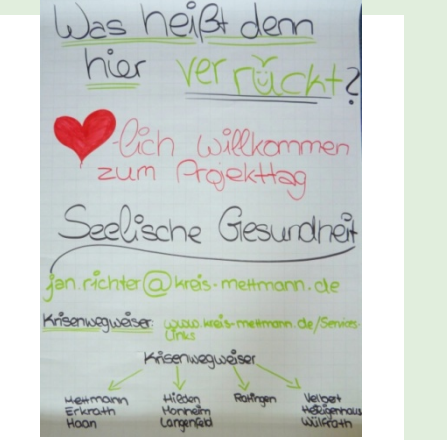 Was heißt denn
hier verrückt?
♥-lich willkommen
zum Projekttag
Seelische Gesundheit
jan.richter@kreis-mettmann.de
Krisenwegweiser: www.kreis-mettmann.de/Services-
Links
Krisenwegweiser
Mettmann Hilden Ratingen Velbert
Erkrath Monheim Heiligenhaus
Haan Langenfeld Wülfrath